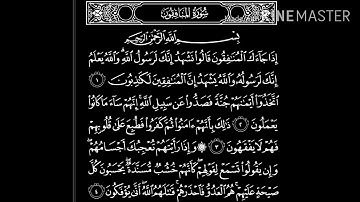 KINEMASTER
سُورَةُ المُنَافِقُونَ
بِسْمِ اللَّهِ الرَّحْمَٰنِ الرَّحِيمِ
إِذَا جَاءَكَ الْمُنَافِقُونَ قَالُوا نَشْهَدُ إِنَّكَ لَرَسُولُ اللَّهِ وَاللَّهُ يَعْلَمُ
إِنَّكَ لَرَسُولُهُ وَاللَّهُ يَشْهَدُ إِنَّ الْمُنَافِقِينَ لَكَاذِبُونَ ١
اتَّخَذُوا أَيْمَانَهُمْ جُنَّةً فَصَدُّوا عَن سَبِيلِ اللَّهِ إِنَّهُمْ سَاءَ مَا كَانُوا
يَعْمَلُونَ ٢ ذَٰلِكَ بِأَنَّهُمْ آمَنُوا ثُمَّ كَفَرُوا فَطُبِعَ عَلَىٰ قُلُوبِهِمْ
فَهُمْ لَا يَفْقَهُونَ ٣ وَإِذَا رَأَيْتَهُمْ تُعْجِبُكَ أَجْسَامُهُمْ
وَإِن يَقُولُوا تَسْمَعْ لِقَوْلِهِمْ كَأَنَّهُمْ خُشُبٌ مُّسَنَّدَةٌ يَحْسَبُونَ كُلَّ
صَيْحَةٍ عَلَيْهِمْ هُمُ الْعَدُوُّ فَاحْذَرْهُمْ قَاتَلَهُمُ اللَّهُ أَنَّىٰ يُؤْفَكُونَ ٤